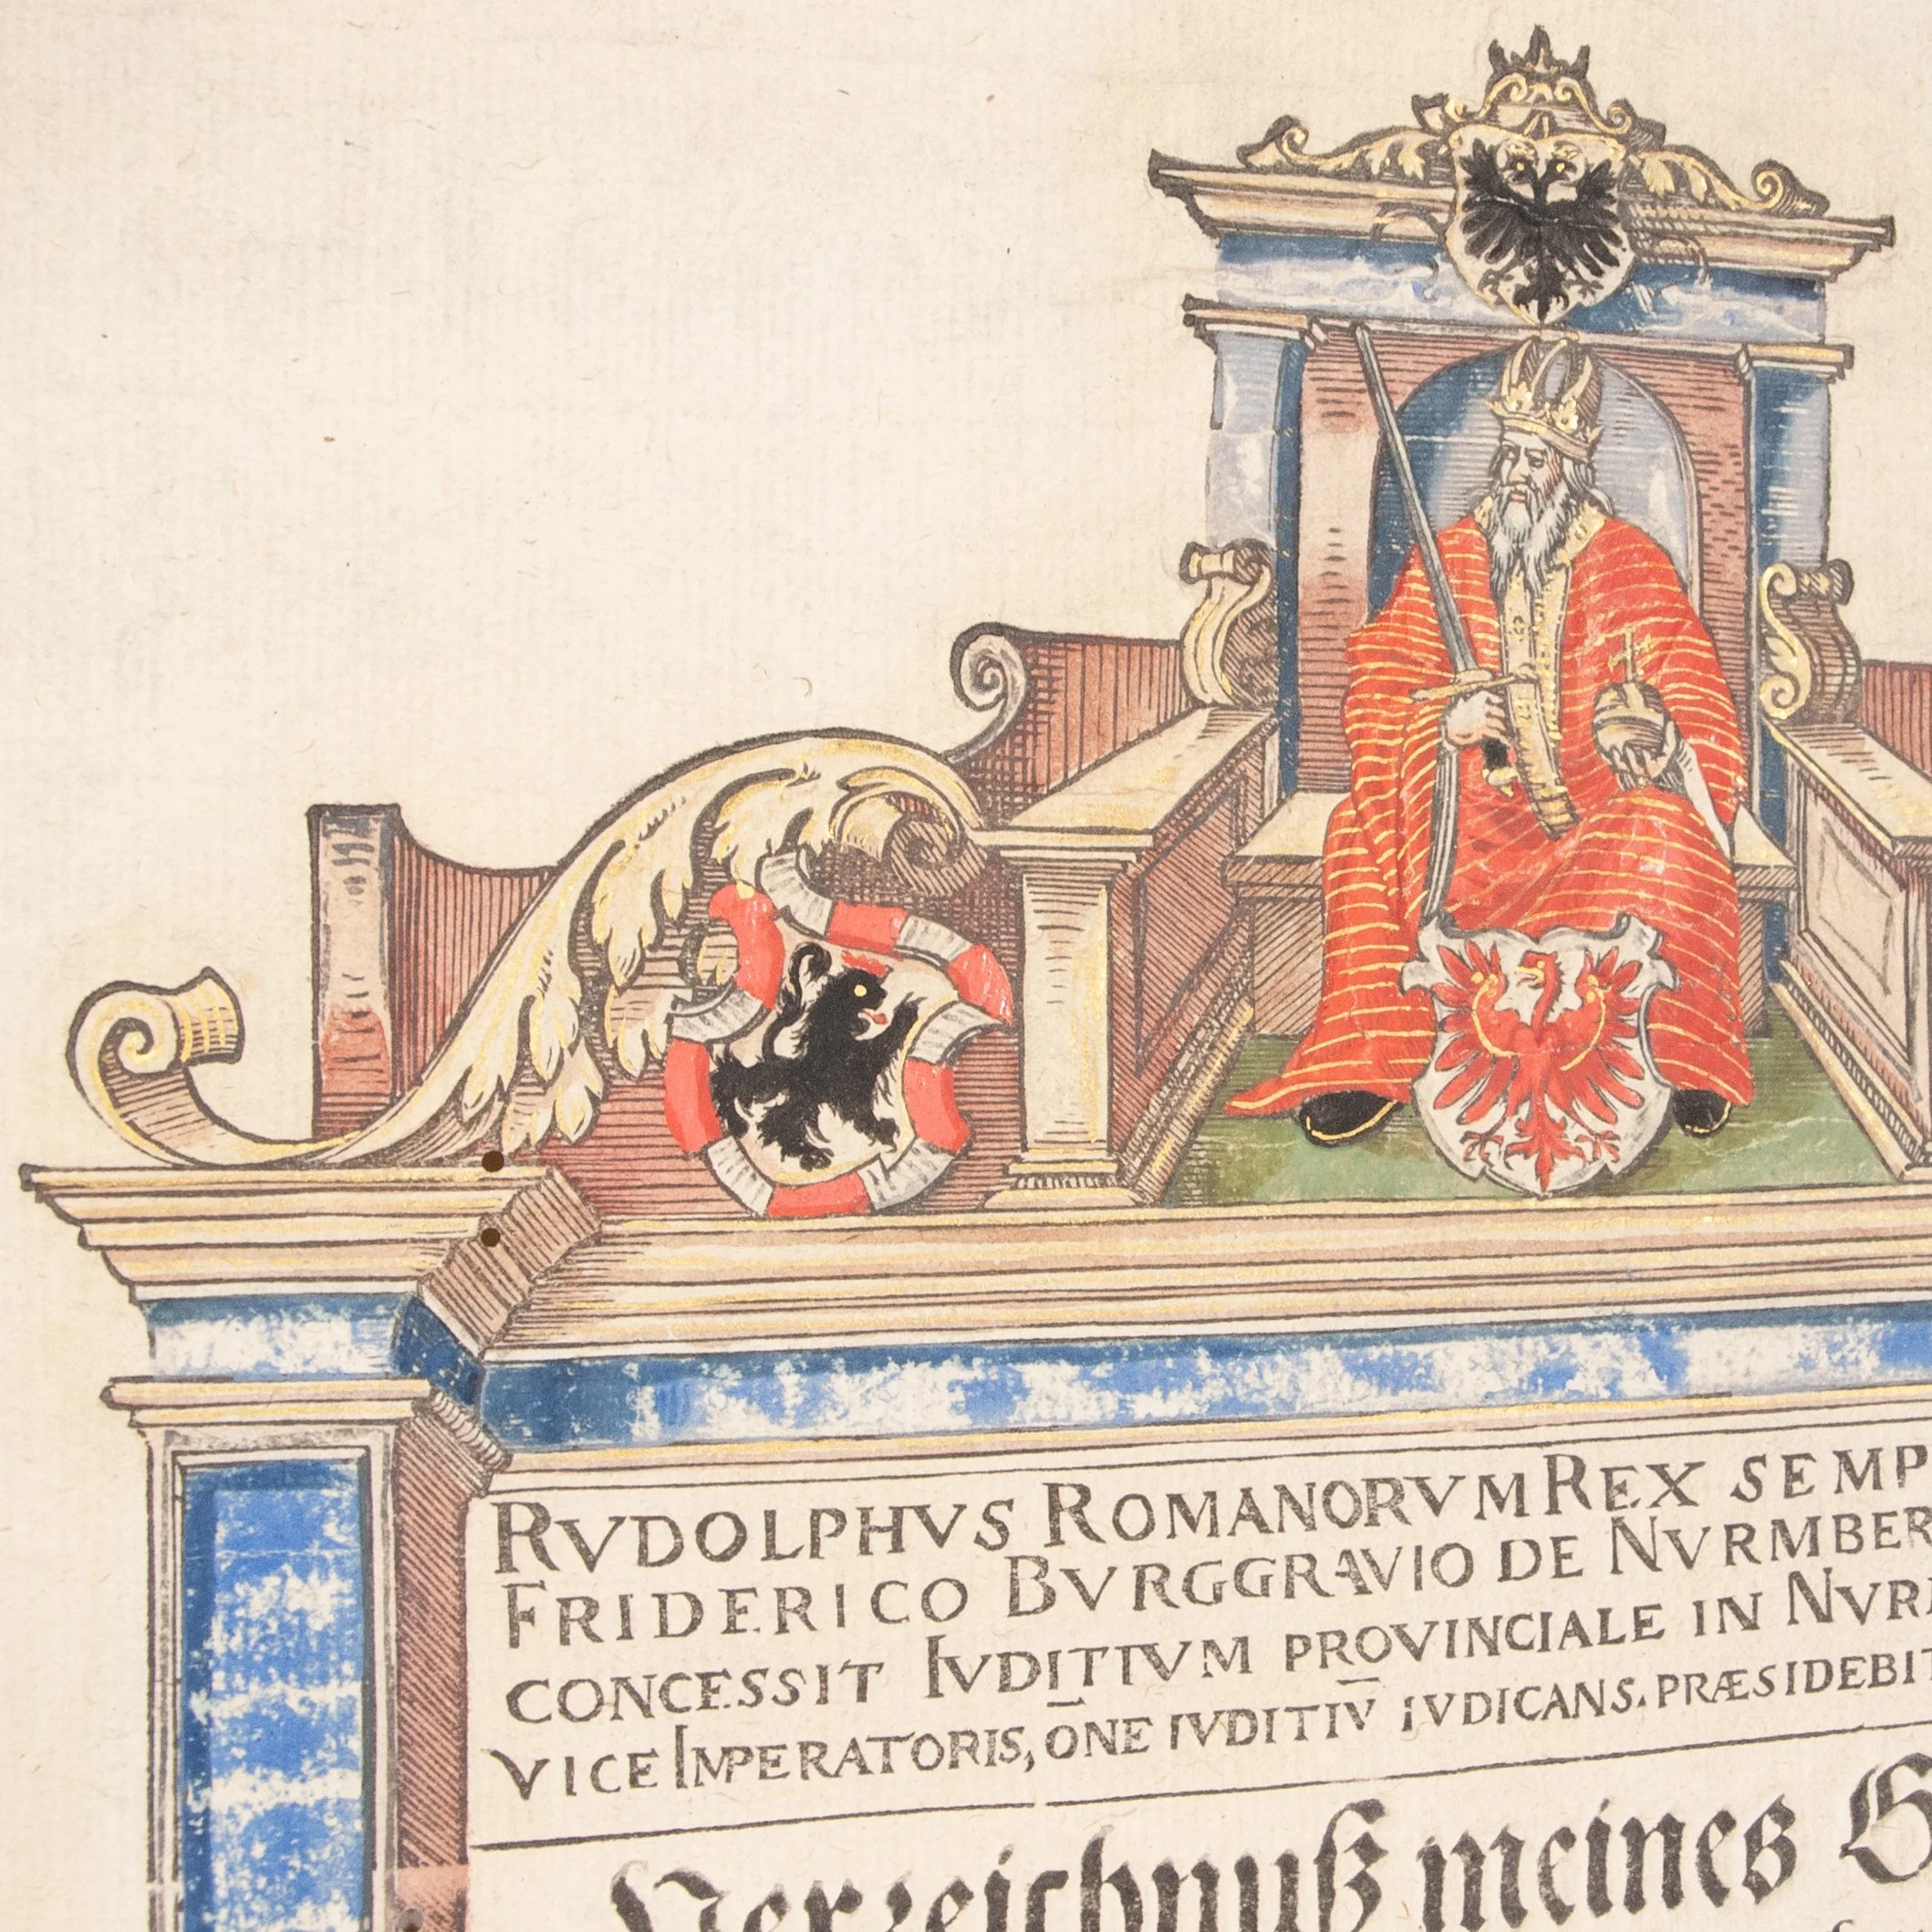 RVDOLPHVS ROMANORVM REX SEMP
FRIDERICO BVRGGRAVIO DE NVRMBER
CONCESSIT IVDITIVM PROVINCIALE IN NVR
VICE IMPERATORIS, ŌNE IVDITIV̄ IVDICANS. PRÆSIDEBIT
Verzeichnuß meines